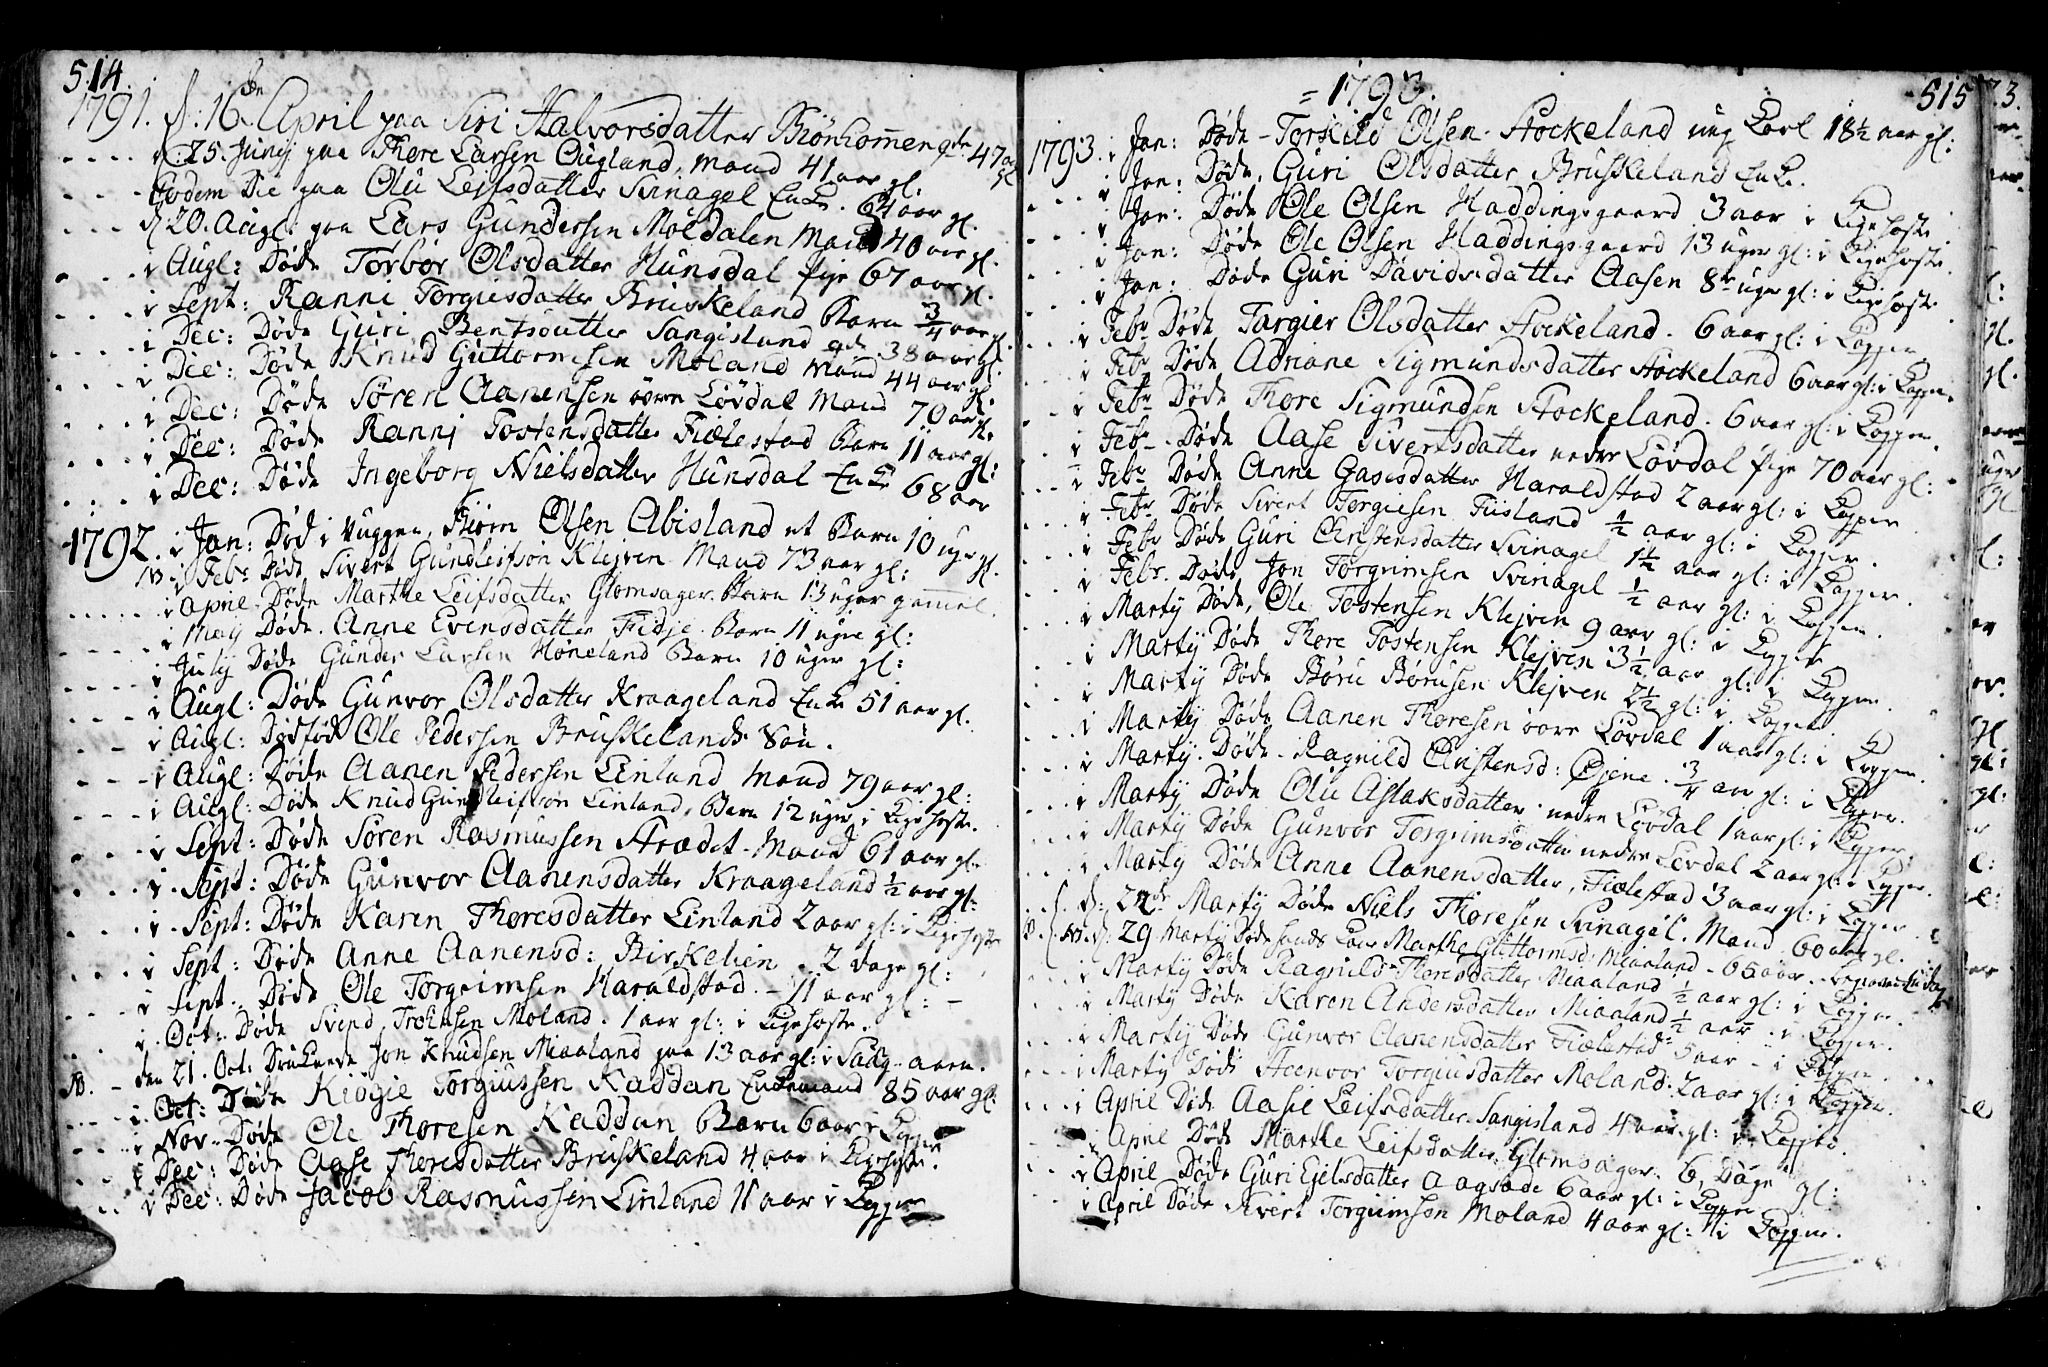 514.
1791. d: 16de April paa Siri Halvorsdatter Biørkommen gde 47 aar gl
d: 25. Junij paa Thore Larsen Ougland, Mand 41 aar gl.
Eodem Die paa Olu Leifsdatter Svinagel Enke. 64 aar gl.
d 20. Augl: paa Lars Gundersen Moldalen Mand 40 aar gl.
i Augl: Døde Torbor Olsdatter Hunsdal Pige 67 aar gl.
i Sept: Ranni Torgiusdatter Bruskeland Barn 3/4 aar gl.
i Dec: Døde Guri Bentsdatter Sangisland gde 38 aar gl.
i Dec: Døde Knud Guttormsen Moland Mand 44 aar gl.
i Dec: Døde Søren Aanensen øvre Løvdal Mand 70 aar gl.
i Dec: Døde Rannj Tostensdatter Fiælestad Barn 11 aar gl:
i Dec: Døde Ingeborg Nielsdatter Hunsdal Enke 68 aar
1792. i Jan: Død i Vuggen, Biørn Olsen Abisland et Barn 10 uger gl.
NB i Febr Døde Sivert Gundleifsøn Klejven Mand 73 aar gl:
i April Døde Marthe Leifsdatter Glomsager Barn 13 uger gammel.
i Maij Døde Anne Evensdatter Fidje Barn 11 uger gl:
i Julij Døde Gunder Larsen Høneland Barn 10 uger gl:
i Augl: Døde Gunvor Olsdatter Kraageland Enke 51 aar gl.
i Augl: Dødfød Ole Pedersen Bruskelands Søn.
i Augl: Døde Aanen Pedersen Linland Mand 79 aar gl:
i Augl: Døde Knud Gundleifsøn Linland, Barn 12 uger i Kighoste.
i Sept: Døde Søren Rasmussen Strædet Mand 61 aar gl.
i Sept: Døde Gunvor Aanensdatter Kraageland 1/2 aar gl:
i Sept: Døde Karen Thoresdatter Linland 2 aar gl: i Kighoste
i Sept: Døde Anne Aanensd: Birkelien - 2 dage gl:
i Sept. Døde Ole Torgrimsen Haraldstad. - 11 aar gl: -
i Oct: Døde Svend Trondsen Moland. 1 aar gl: i Kighoste.
NB. - den 21. Oct: Druknede Jon Knudsen Miaaland paa 13 aar gl: i Sadg-aaen.
i Oct: Døde Kiøgie Torgiussen Kaddan Enkemand 85 aar gl:
i Nov. Døde Ole Thoresen Kaddan Barn 6 aar i Kopper
i Dec: Døde Aase Thoresdatter Bruskeland 4 aar i Kighoste.
i Dec: Døde Jacob Rasmussen Linland 11 aar i Kopper
= 1793. 515
1793. i Jan: Døde - Torkild Olsen Stockeland ung Karl 18 1/2 aar gl:
i Jan: Døde, Guri Olsdatter Bruskeland Enke.
i Jan: Døde Ole Olsen Haddingsgaard 3 aar i Kighoste
i Jan: Døde Ole Olsen Haddingsgaard 13 uger gl: i Kighoste
i Jan: Døde Guri Davidsdatter Aasen 8te uger gl: i Kighoste
i Febr Døde Targier Olsdatter Stockeland. 6 aar gl: i Kopper
i Febr Døde Adriane Sigmundsdatter Stockeland 6 aar gl: i Kopper.
i Febr Døde Thore Sigmundsen Stockeland. 6 aar gl: i Kopper
i Febr Døde Aase Sivertsdatter nedre Løvdal Pige 70 aar gl:
i Febr Døde Anne Gasesdatter Haraldstad 2 aar gl: i Kopper
i Febr Døde Sivert Torgiesen Fiisland 1/2 aar gl: i Kopper
i Febr Døde Guri Christensdatter Svinagel 1 1/2 aar gl: i Kopper.
i Febr. Døde Jon Torgrimsen Svinagel 1/2 aar gl: i Kopper.
i Martij Døde, Ole Tostensen Klejven 9 aar gl: i Kopper.
i Martij Døde Thore Tostensen Klejven 3 1/2 aar gl: i Kopper
i Martij Døde Børu Børusen Klejven 2 1/2 gl: i Kopper.
i Martij Døde Aanen Thoresen øvre Løvdal 1 aar gl: i Kopper.
i Martij Døde Ragnild Christensd: Øiene. 3/4 aar gl: i Kopper.
i Martij Døde Olu Aslaksdatter nedre Løvdal 1 aar gl: i Kopper.
i Martij Døde Gunvor Torgrimsdatter nedre Løvdal 2 aar gl: i Kopper.
i Martij Døde Anne Aanensdatter, Fiælestad 3 aar gl: i Kopper
d: 24de Martij Døde Niels Thoresen Svinagel. Mand 60 aar gl.
NB. d: 29 Martij Døde hands Kone Marthe Guttormsd: Miaaland - 65 aar.
i Martij Døde Ragnild Thoresdatter Miaaland 1/2 aar gl: i Kopper
i Martij Døde Karen Andersdatter Miaaland 1/2 aar i Kopper.
i Martij Døde Gunvor Aanensdatter Fiælestad 5 aar - i Kopper
i Martij Døde Steenvor Torgiusdatter Moland. 2 aar gl: i Kopper.
i April Døde Aasie Leifsdatter Sangisland 4 aar gl: i Kopper.
i April Døde Marthe Leifsdatter Glomsager. 6 Dage gl:
i April Døde Guri Ejelsdatter Aagsøde 6 aar gl: i Kopper
i April Døde Sivert Torgrimsen Moland 4 aar gl: i Kopper.